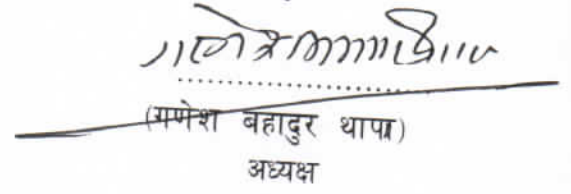 (गणेश बहादुर थापा)
अध्यक्ष